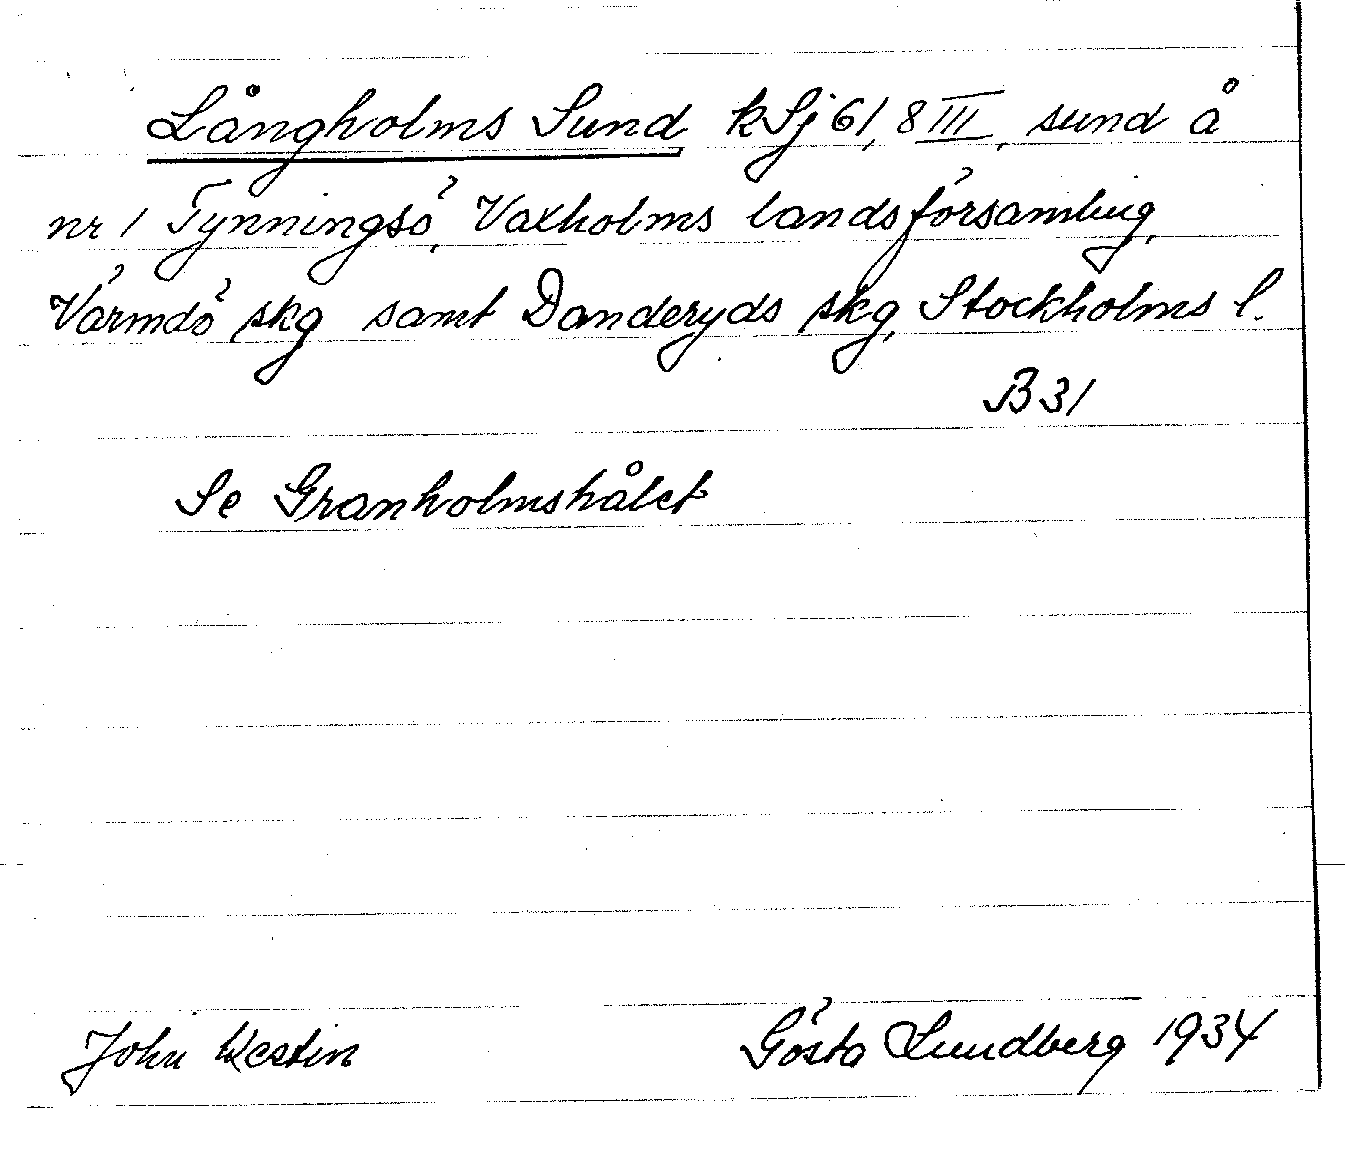 Långholms Sund kSj 61, 8 III, sund å
nr 1 Tynningsö, Vaxholms landsförsamling,
Värmdö skg samt Danderyds skg, Stockholms l.
B31
Se Granholmshålet
John Westin Gösta Lundberg 1934